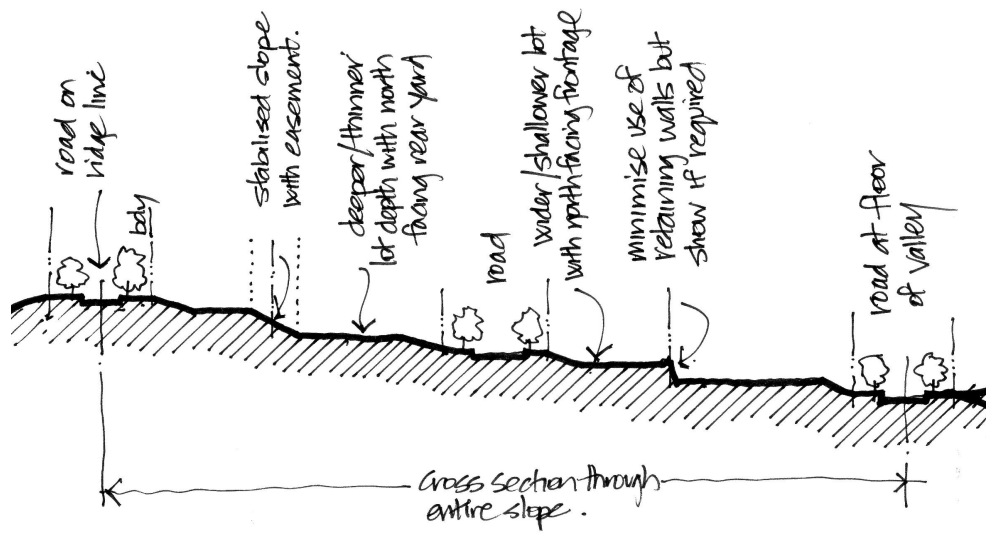 road on
ridge line
bdy
stabilised slope
with easement.
deeper/thinner
lot depth with north
facing rear yard
road
wider/shallower lot
with north facing frontage
minimise use of
retaining walls but
show if required
road at floor
of valley
cross section through
entire slope.